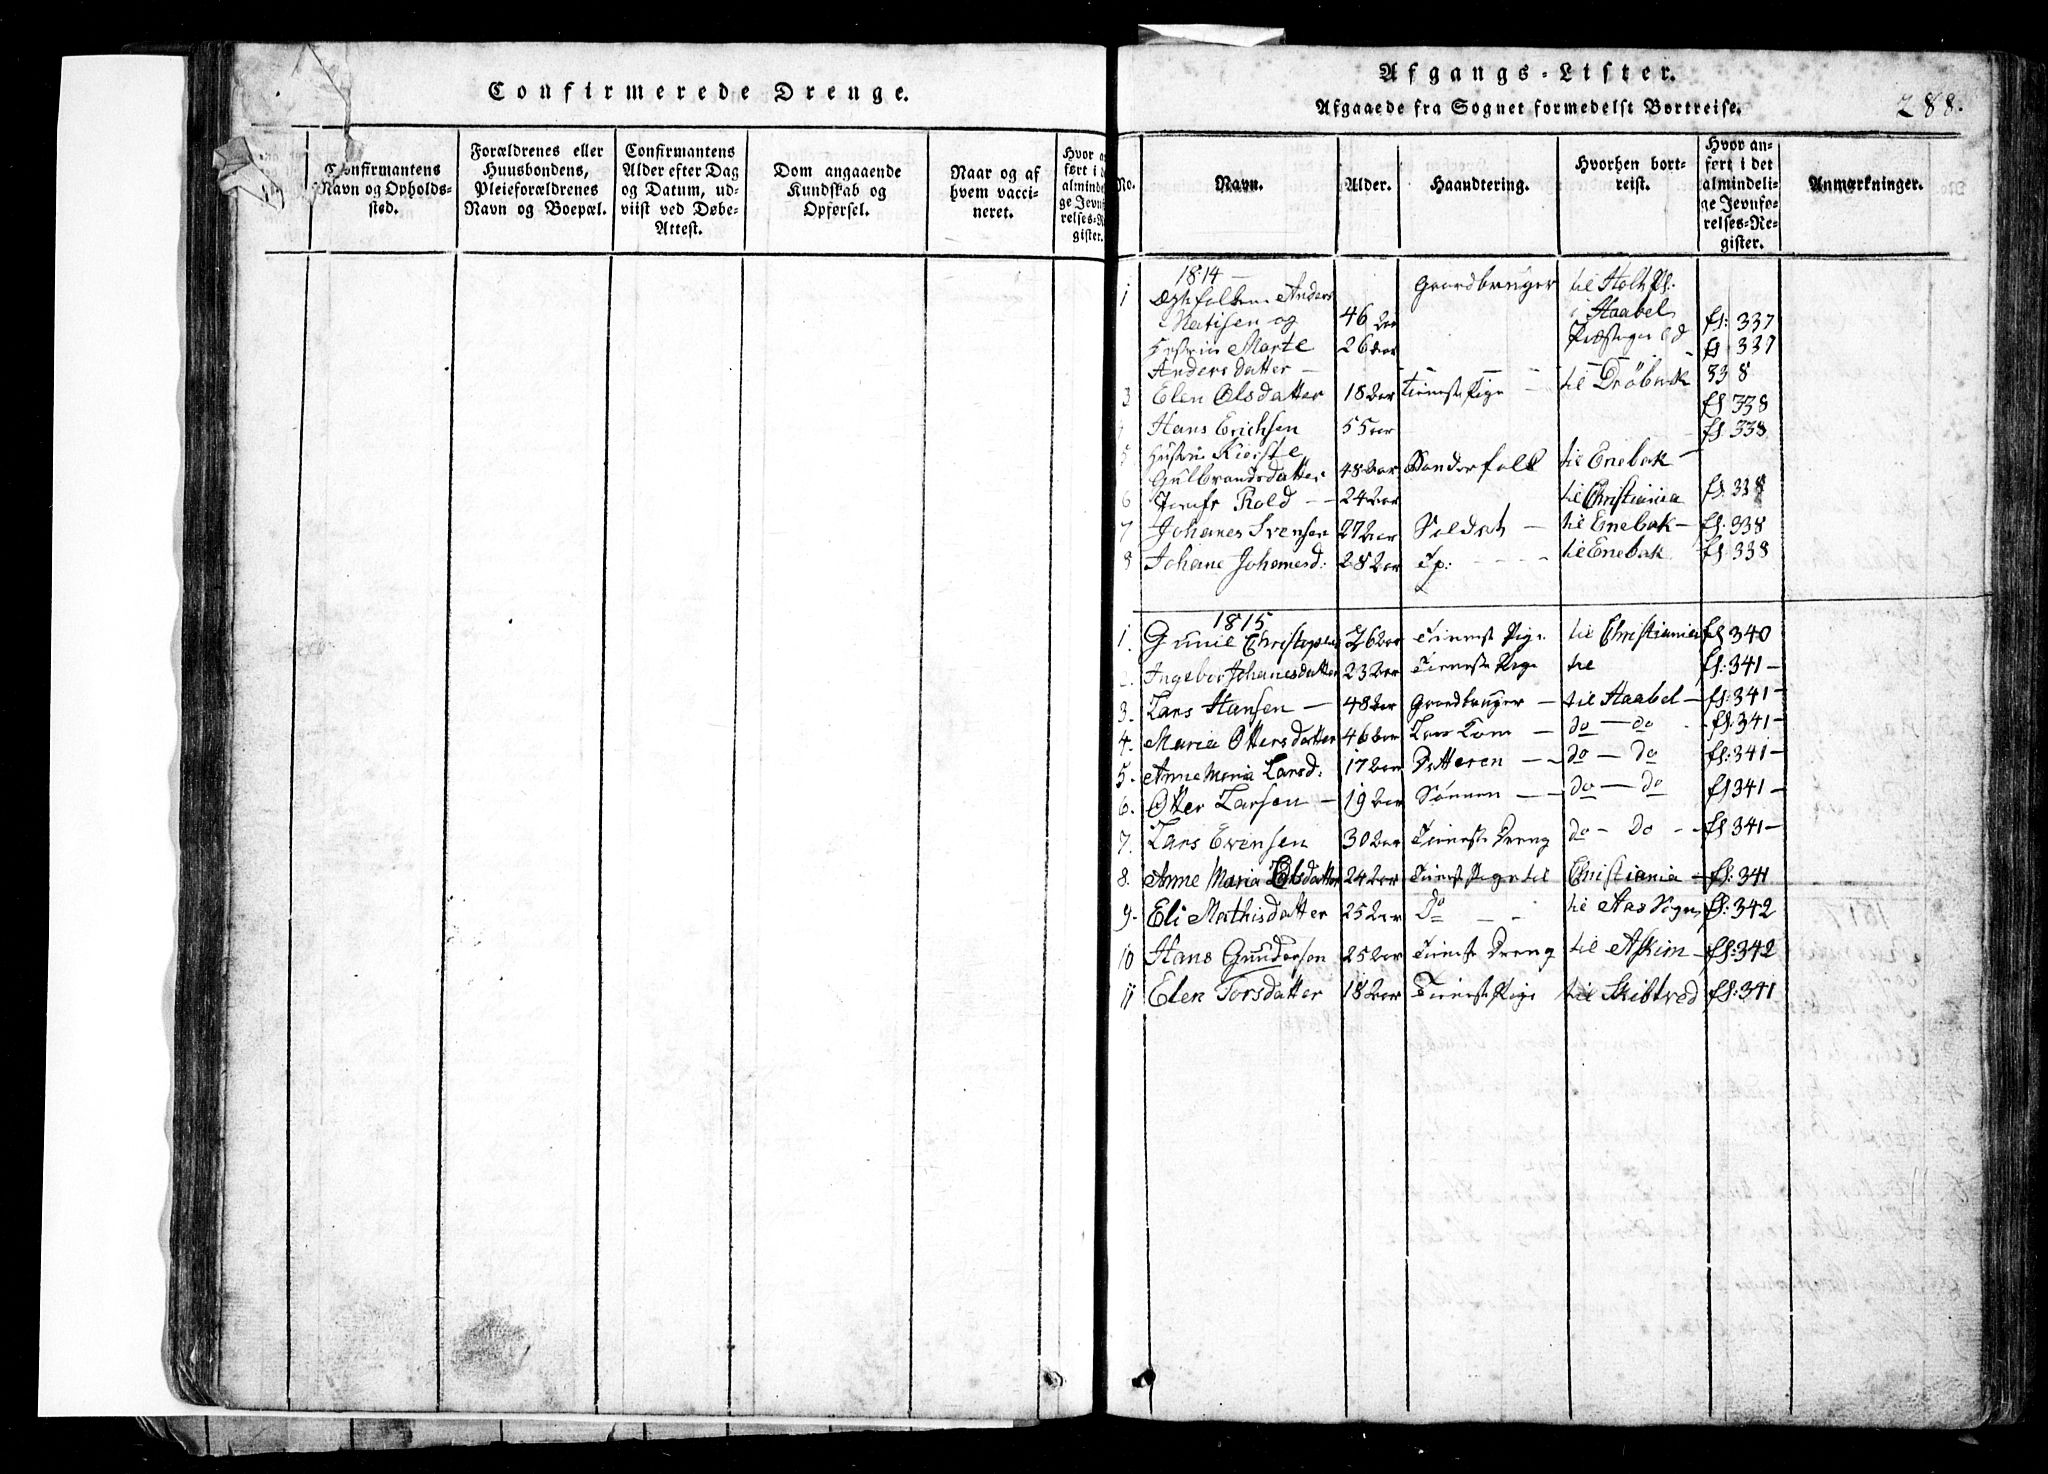 Confirmerede Drenge.
Confirmantens Navn og Opholdssted.
Forældrenes eller Huusbondens, Pleieforældrenes Navn og Boepæl.
Confirmantens Alder efter Dag og Datum, udviist ved Døbe-Attest.
Dom angaaende Kundskab og Opførsel.
Naar og af hvem vaccineret.
Afgangs-Lister.
Afgaaede fra Sognet formedelst Bortreise.
288.
No.
Navn.
Alder.
Haandtering.
Hvorhen bortreist.
Hvor anført i det almindelige Jevnførelses-Register.
Anmærkninger.
1814 —
1 Anders Gaardbruger til
46 aar i Haabel fl: 337
Marte 26 aar fl 337
Anders datter —
3 Elen Olsdatter 18 aar tieneste Pige — til Drøbak 338
fl 338
Hans Erichsen 55 aar fl. 338
5 Hustru Kierste
Gulbrandsdatter 48 aar Bonderfolk til Enebak —
6 24 aar til Christiania fl. 338
7 Johanes Svensen 27 aar Soldat — til Enebak — fl: 338
8 Johane Johanesd: 28 aar til Enebak fl: 338
1815
1. 26 aar Tieneste Pige til Christiania fl 340
2. Ingebor Johanesdatter 23 aar Tieneste Pige til fl: 341 —
3. Lars Hansen — 48 aar Gaardbruger — til Haabel — fl: 341 —
4. Maria Ottersdatter 46 aar — do — do fl: 341 —
5. Anne Maria Larsd: 17 aar Datteren — do — do fl: 341 —
6. Otter Larsen — 19 aar Sønnen — do — do fl 341 —
7. Lars Evensen 30 aar Tieneste Dreng do — do — fl 341 —
8. Anne Maria 24 aar Tieneste Pige til Christiania — fl: 341
9. Eli Mathisdatter 25 aar Do til Aas Sogn fl: 342
10 Hans Gunderson 25 aar Tieneste Dreng til Askim — fl: 342
11 Elen Torsdatter 18 aar Tieneste Pige til Skibtved fl: 341